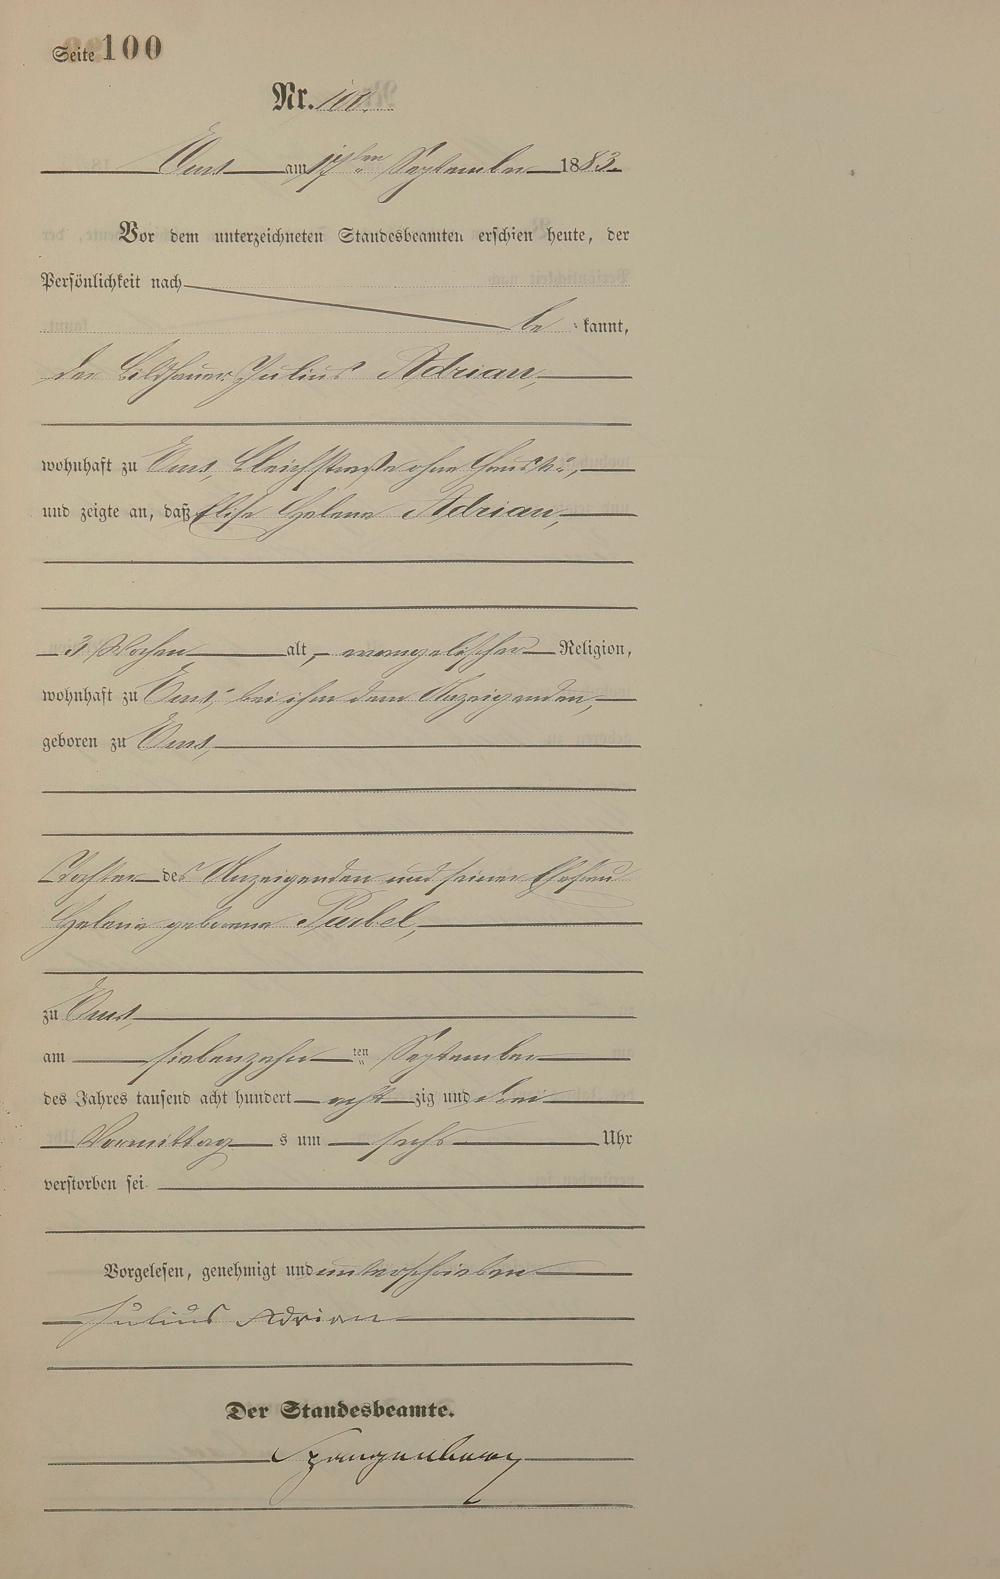 Seite 100
Nr. 100.
Ems am 17ten September 1883.
Vor dem unterzeichneten Standesbeamten erschien heute, der
Persönlichkeit nach
be kannt,
der Bildhauer Julius Adrian,
wohnhaft zu Ems, Bleichstraße ohne Haus№,
und zeigte an, daß Elise Helene Adrian,
3 Wochen alt, evangelischer Religion,
wohnhaft zu Ems, bei ihm dem Anzeigenden,
geboren zu Ems,
Tochter des Anzeigenden und seiner Ehefrau
Helene geborene
zu Ems,
am siebenzehn ten September
des Jahres tausend acht hundert acht zig und drei
Vormittag s um sechs Uhr
verstorben sei
Vorgelesen, genehmigt und unterschrieben
Julius Adrian
Der Standesbeamte.
Spangenberg